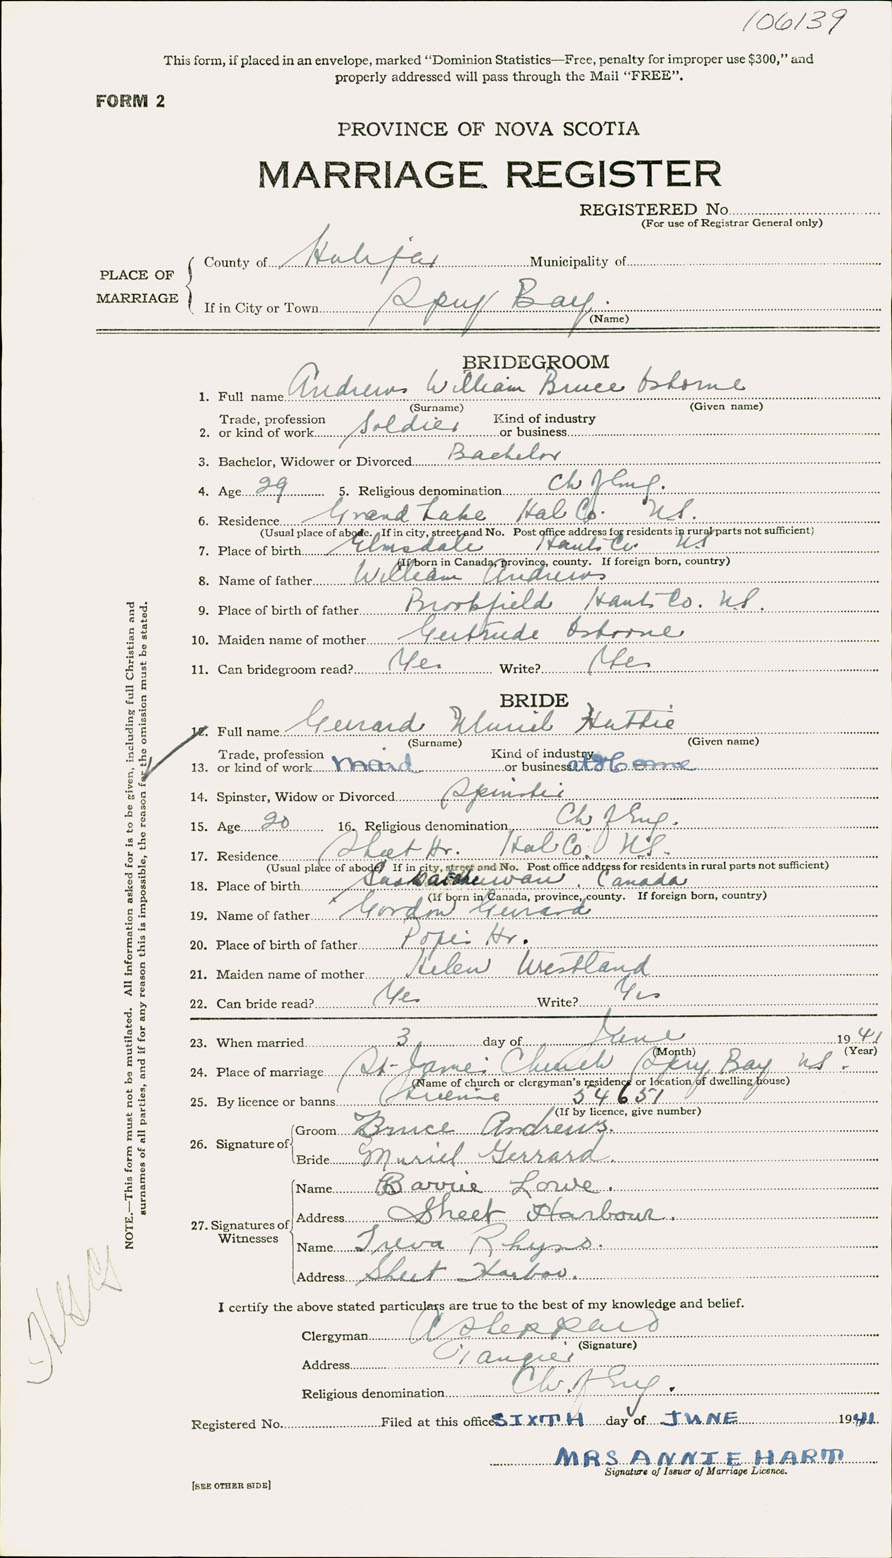 106139
This form, if placed in an envelope, marked "Dominion Statistics—Free, penalty for improper use $300," and
properly addressed will pass through the Mail "FREE".
FORM 2
PROVINCE OF NOVA SCOTIA
MARRIAGE REGISTER
REGISTERED No.
(For use of Registrar General only)
PLACE OF MARRIAGE
County of Halifax Municipality of
If in City or Town Spry Bay.
(Name)
BRIDEGROOM
1. Full name Andrews William Bruce Osborne
(Surname) (Given name)
2. Trade, profession or kind of work Soldier Kind of industry or business
3. Bachelor, Widower or Divorced Bachelor
4. Age 29 5. Religious denomination Ch of Eng.
6. Residence Grand Lake Hal Co. N.S.
(Usual place of abode. If in city, street and No. Post office address for residents in rural parts not sufficient)
7. Place of birth Elmsdale Hants Co N S
(If born in Canada, province, county. If foreign born, country)
8. Name of father William Andrews
9. Place of birth of father Brookfield Hants Co. N.S.
10. Maiden name of mother Gertrude Osborne
11. Can bridegroom read? Yes Write? Yes
BRIDE
12. Full name Gerrard Muriel Hattie
(Surname) (Given name)
13. Trade, profession or kind of work Maid Kind of industry or business at Home
14. Spinster, Widow or Divorced Spinster
15. Age 20 16. Religious denomination Ch of Eng.
17. Residence Sheet Hr. Hal Co. N.S.
(Usual place of abode. If in city, street and No. Post office address for residents in rural parts not sufficient)
18. Place of birth Saskatchewan, Canada
(If born in Canada, province, county. If foreign born, country)
19. Name of father Gordon Gerrard
20. Place of birth of father Popes Hr.
21. Maiden name of mother Helen Westland
22. Can bride read? Yes Write? Yes
23. When married 3 day of June 1941
(Month) (Year)
24. Place of marriage St. James Church Spry Bay N S.
(Name of church or clergyman's residence or location of dwelling house)
25. By licence or banns License 54651
(If by licence, give number)
26. Signature of
Groom Bruce Andrews.
Bride Muriel Gerrard.
27. Signatures of Witnesses
Name Barrie Lowe.
Address Sheet Harbour.
Name Treva Rhyno.
Address Sheet Harbor.
I certify the above stated particulars are true to the best of my knowledge and belief.
Clergyman A Sheppard
(Signature)
Address Tangier
Religious denomination Ch. of Eng.
Registered No. Filed at this office SIXTH day of JUNE 1941
MRS ANNIE HART
Signature of Issuer of Marriage Licence.
[SEE OTHER SIDE]
NOTE.—This form must not be mutilated. All information asked for is to be given, including full Christian and
surnames of all parties, and if for any reason this is impossible, the reason for the omission must be stated.